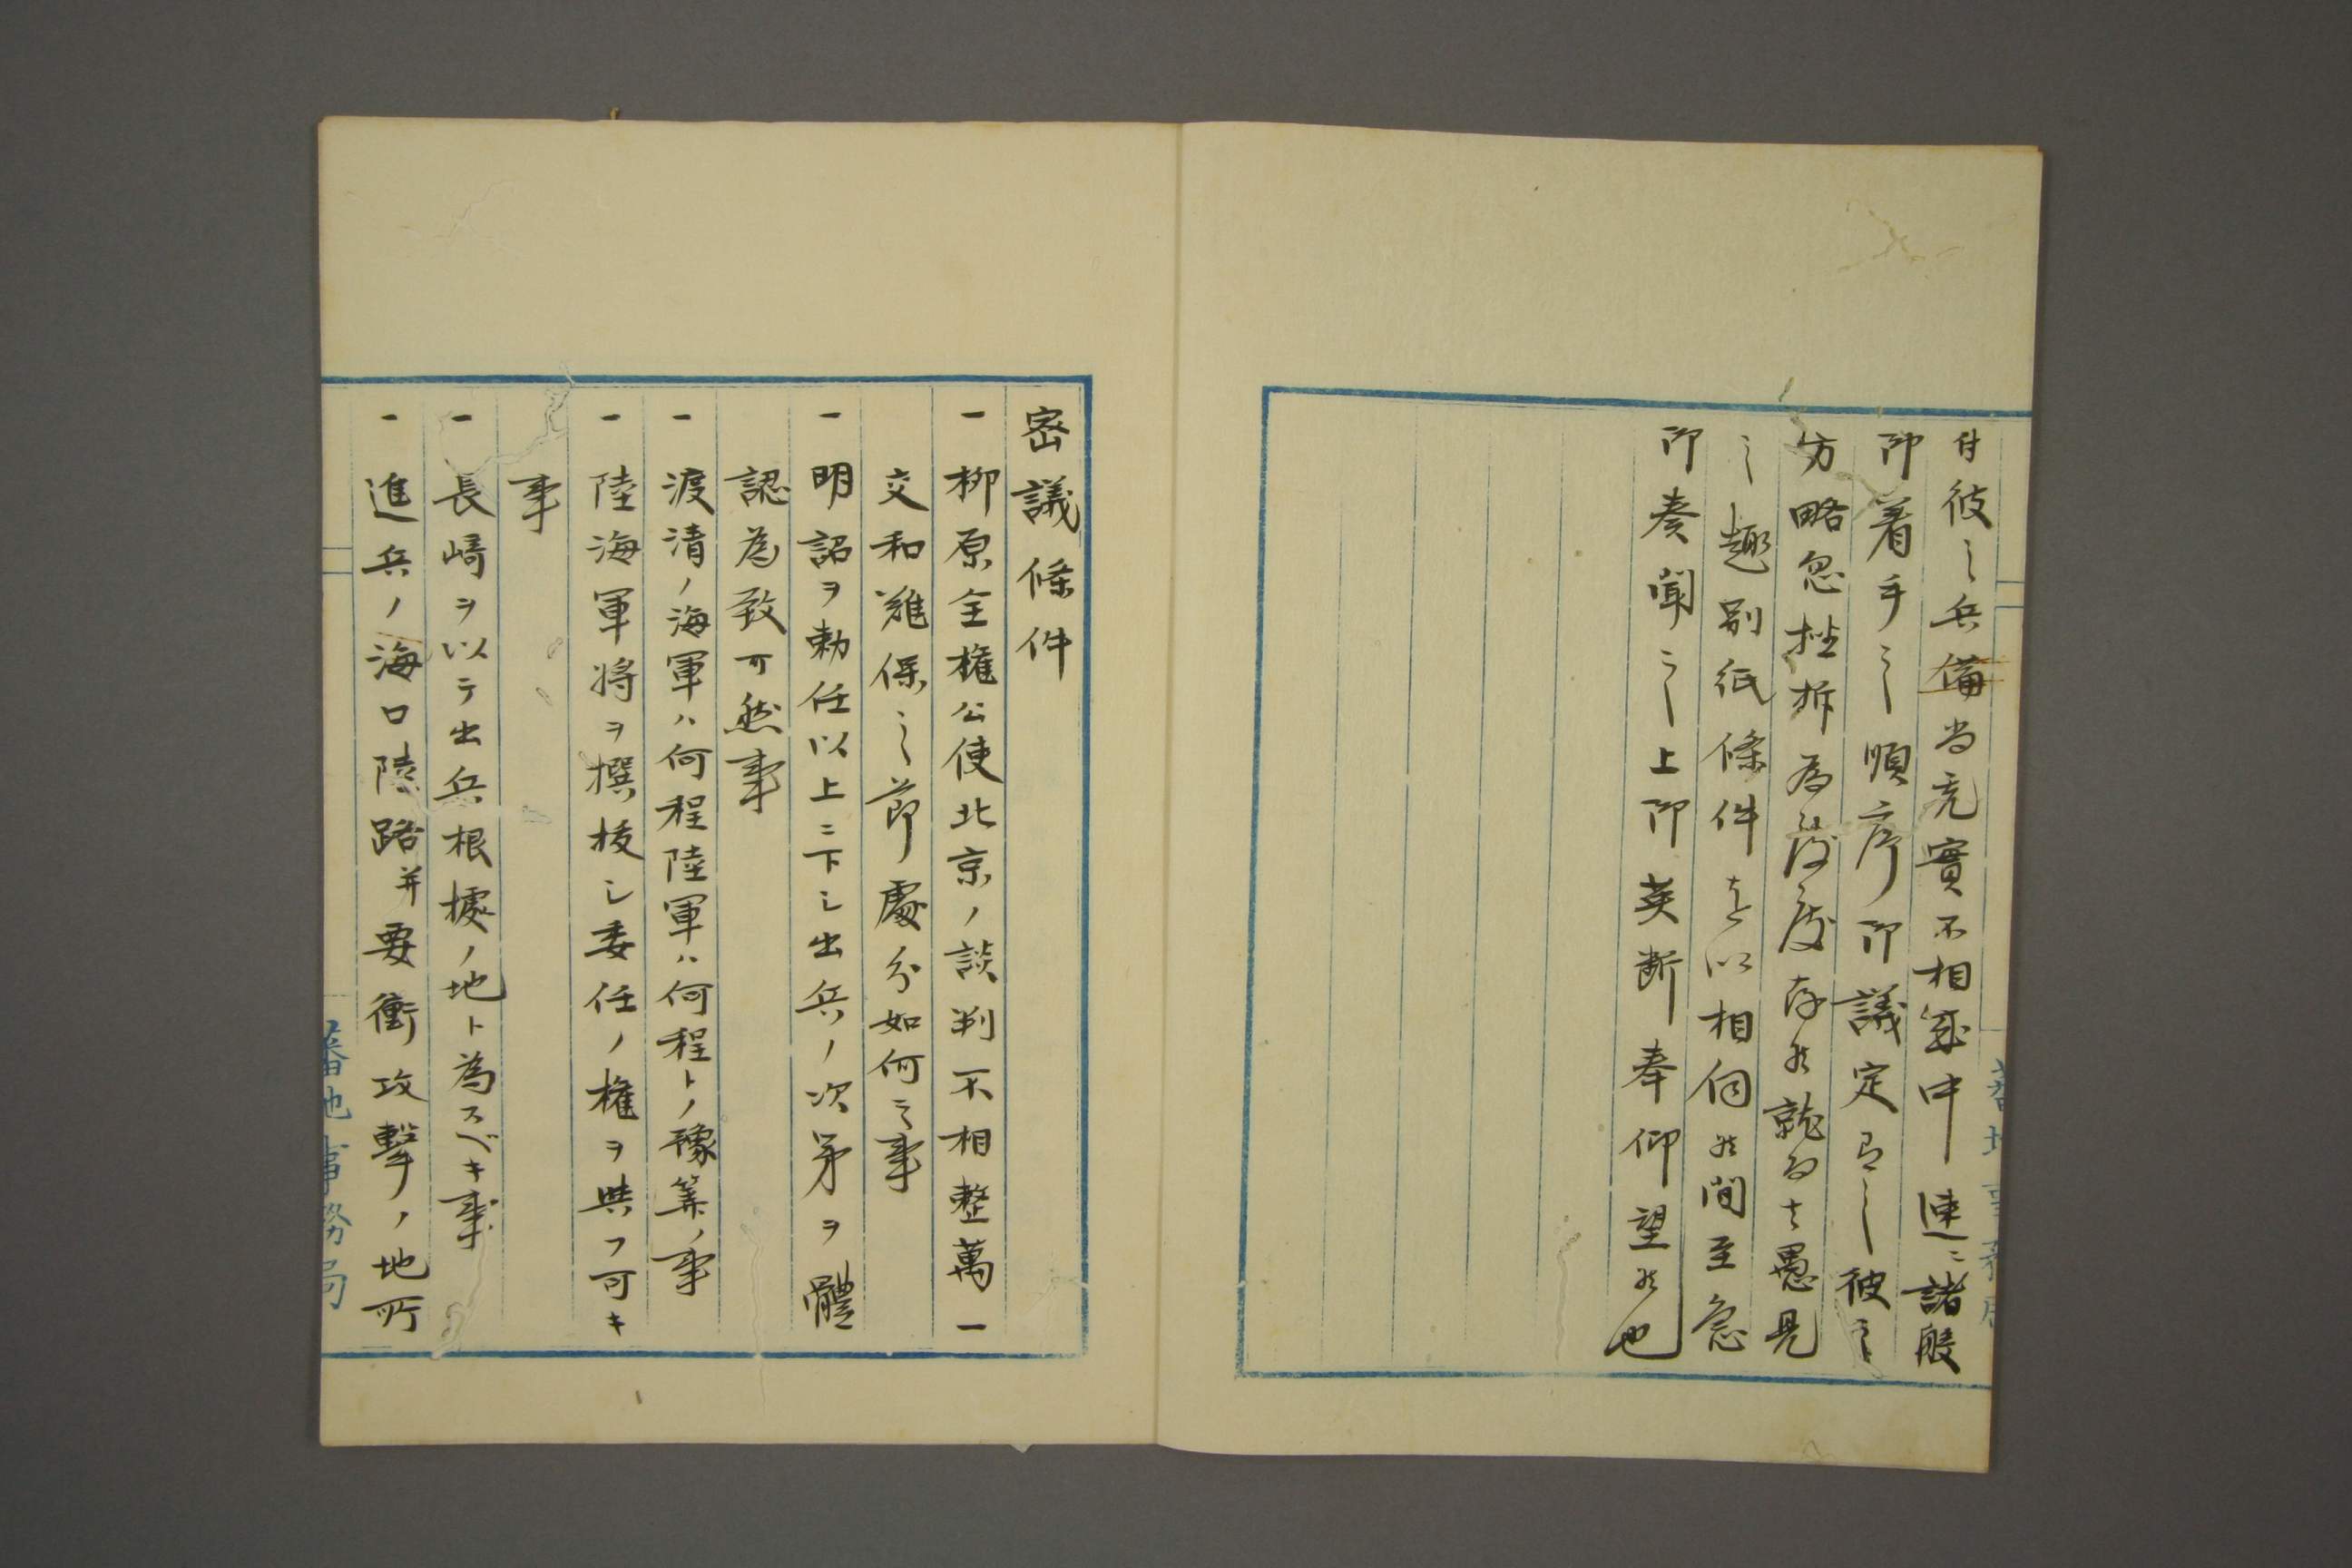 付彼之兵備尚充實不相成中速ニ諸般
御着手之順序御議定有之彼之
方略忽挫折為致度存候就而者愚見
之趣別紙條件を以相伺候間至急
御奏聞之上御英断奉仰望候也
蕃地事務局
密議條件
一柳原全権公使北京ノ談判不相整萬一
交和難保之節處分如何之事
一明詔ヲ勅任以上ニ下シ出兵ノ次第ヲ體
認為致可然事
一渡清ノ海軍ハ何程陸軍ハ何程トノ豫算ノ事
一陸海軍将ヲ撰抜シ委任ノ権ヲ與フ可キ
事
一長崎ヲ以テ出兵根據ノ地ト為スベキ事
一進兵ノ海口陸路并要衝攻撃ノ地所
蕃地事務局